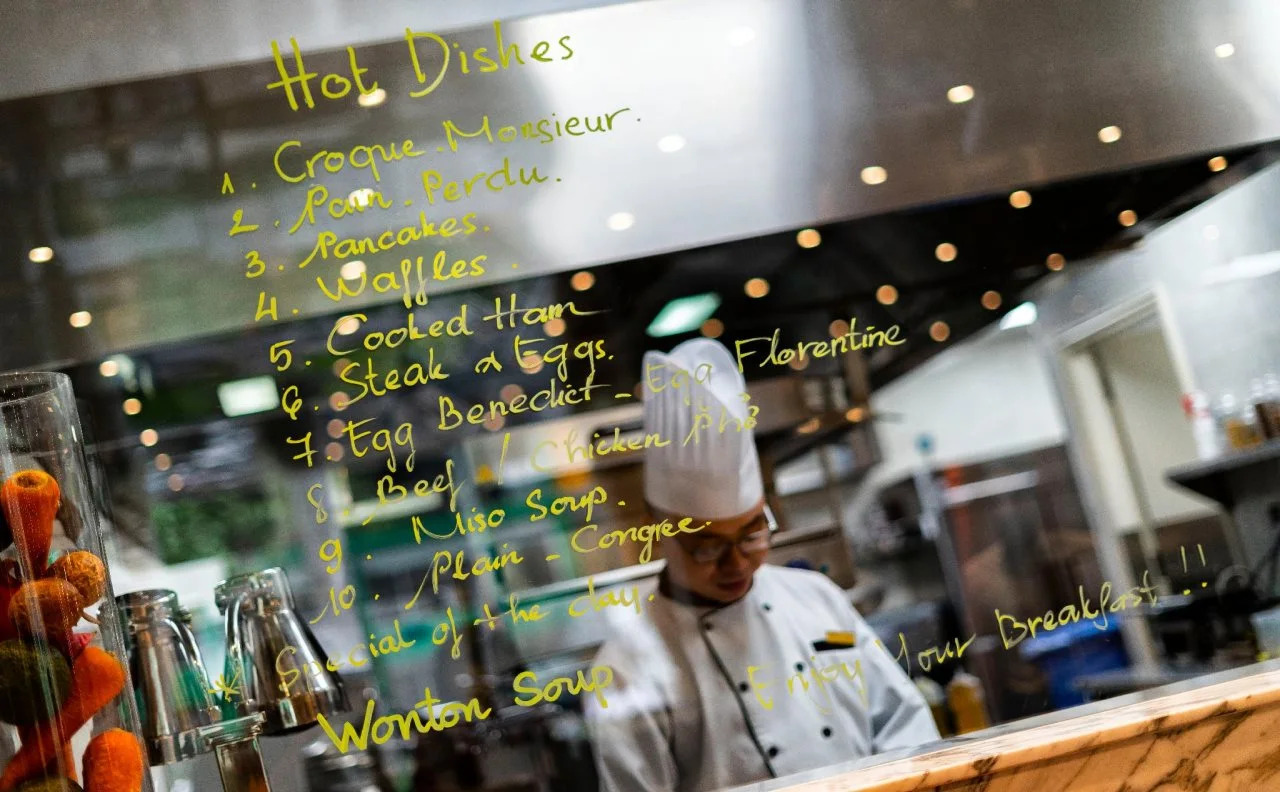 Hot Dishes
1. Croque. Monsieur.
2. Pain. Perdu.
3. Pancakes.
4. Waffles.
5. Cooked Ham
6. Steak & Eggs.
7. Egg Benedict - Egg Florentine
8. Beef / Chicken Phở
9. Miso Soup.
10. Plain - Congree.
* Special of the day.
Wonton Soup
Enjoy Your Breakfast!!